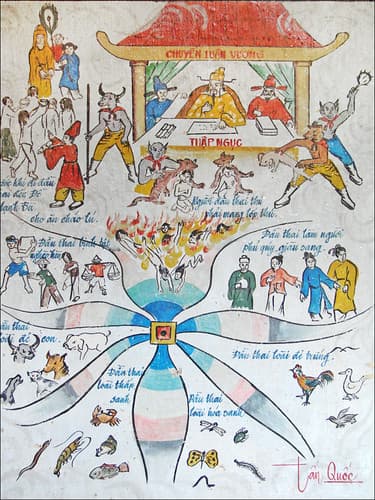 CHUYỂN LUÂN VƯƠNG
THẬP NGỤC
cho ăn cháo lú.
Người đầu thai thú
phải mang lốp thú.
Đầu thai bịnh tật
nghèo khổ
Đầu thai làm người
phú quý, giàu sang.
đầu thai
loài đẻ con.
Đầu thai loài đẻ trứng.
Đầu thai
loài thấp
sanh
Đầu thai
loài hóa sanh
Tấn Quốc